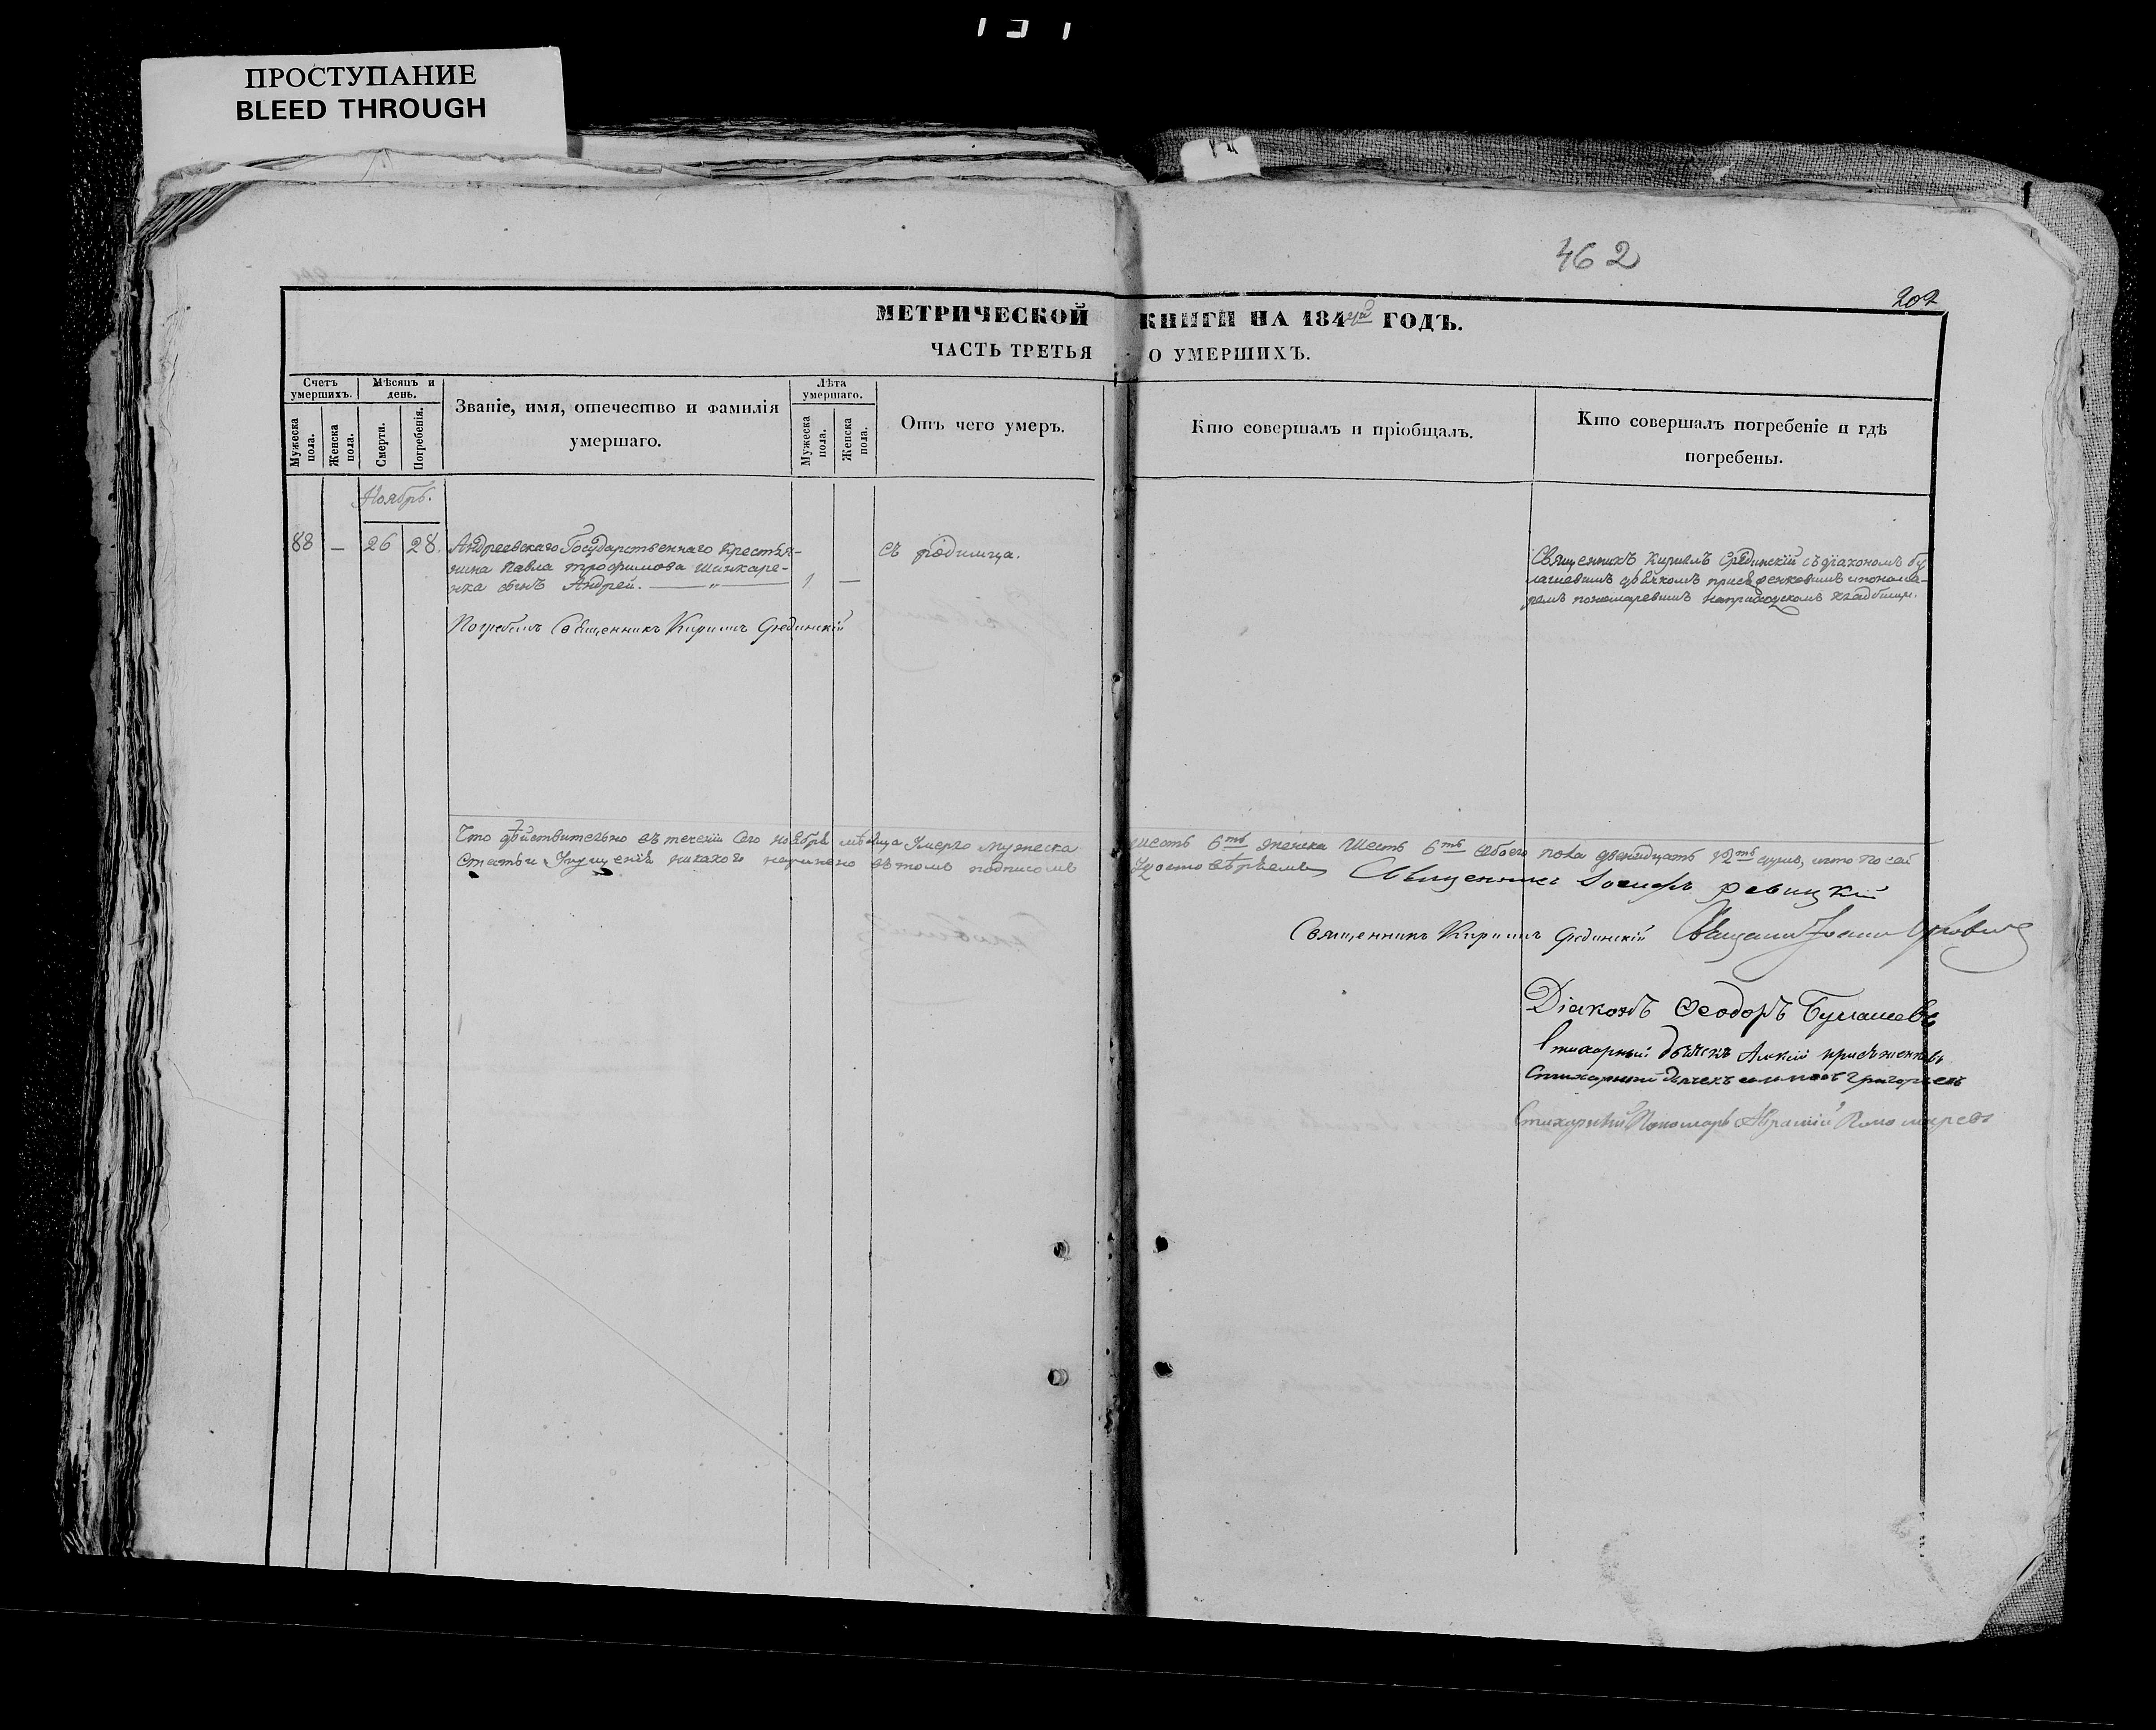 ПРОСТУПАНИЕ
BLEED THROUGH
462
202
МЕТРИЧЕСКОЙ КНИГИ НА 184 ГОДЪ.
ЧАСТЬ ТРЕТЬЯ О УМЕРШИХЪ.
Счетъ умершихъ.
Мужеска пола.
Женска пола.
Мѣсяцъ и день.
Смерти.
Погребенія.
Званіе, имя, отечество и фамилія умершаго.
Лѣта умершаго.
Мужеска пола.
Женска пола.
Отъ чего умеръ.
Кто совершалъ и пріобщалъ.
Кто совершалъ погребеніе и гдѣ погребены.
Ноябрь.
88 — 26 28. Андреевскаго Государственнаго Крестья-
нина Павла Трофимова Шинкаре-
нка сынъ Андрей. — „ — 1 —
съ родимца.
Священникъ Кириллъ Срединскій съ діакономъ Бу
лашевымъ дьячкомъ и понома-
ремъ пономаревымъ на приходскомъ кладбищи.
Погребалъ Священникъ Кириллъ Срединскій
Что дѣйствительно въ теченіи сего ноября мѣсяца Умерло мужеска шесть 6ть женска Шесть 6ть обоего пола двенадцать 12ть душъ, и что по сей
Статьи Упущенія никакого неучинено въ томъ подписомъ Удостовѣряемъ Священникъ Іосифъ Ревицкій
Священникъ Кириллъ Срединскій Священникъ Іоаннъ
Діаконъ Феодоръ Булашевъ
Стихарный дьячекъ
Стихарный дьячекъ Григорьевъ
Стихарный Пономарь Пономаревъ